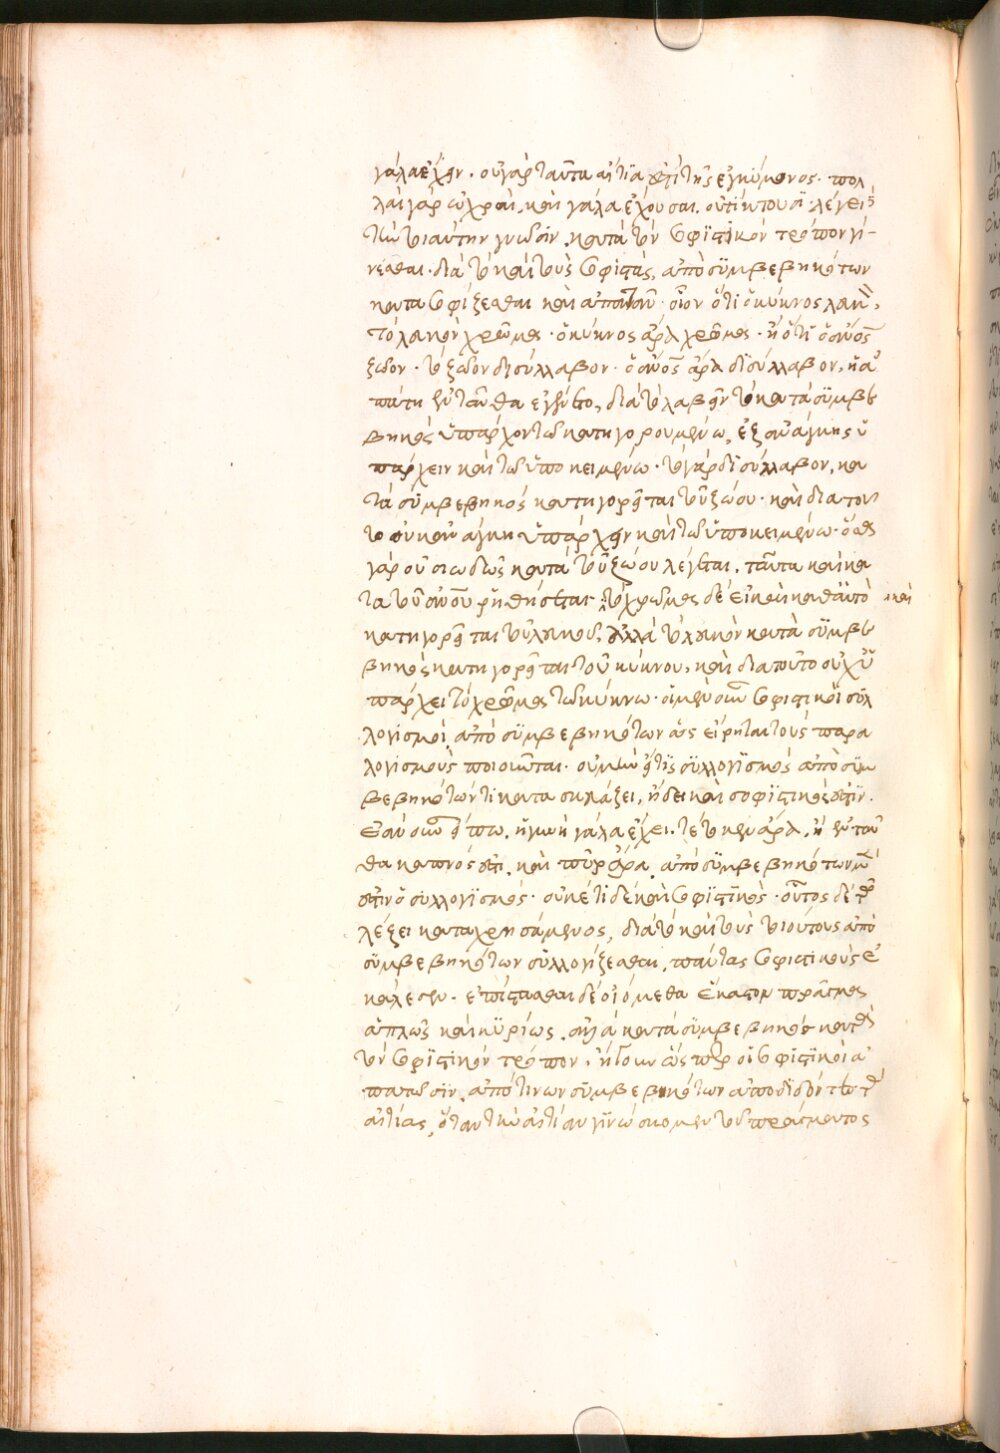 γάλα ἔχειν. οὐ γὰρ ταῦτα αἴτια ἐστὶ τῆς ἐγκύμονος. πολ
λαὶ γὰρ ὠχραὶ καὶ γάλα ἔχουσαι, οὐ τίκτουσι. λέγει
τὴν τοιαύτην γνῶσιν, κατὰ τὸν σοφιστικὸν τρόπον γί-
νεσθαι. διὰ τὸ καὶ τοὺς σοφιστὰς, ἀπὸ συμβεβηκότων
κατασοφίζεσθαι καὶ ἀπατᾶν. οἷον ὅτι ὁ κύκνος λευκὸς,
τὸ λευκὸν χρῶμα. ὁ κύκνος ἄρα χρῶμα. ἢ ὅτι ὁ ἄνος
ζῶον. τὸ ζῶον δισύλλαβον. ὁ ἄνος ἄρα δισύλλαβον. ἡ ἀ
πάτη ἐνταῦθα ἐγένετο, διὰ τὸ λαβεῖν τὸ κατὰ συμβε
βηκὸς ὑπάρχον τῶ κατηγορουμένω, ἐξ ἀνάγκης ὑ
πάρχειν καὶ τῶ ὑποκειμένω. τὸ γὰρ δισύλλαβον, κα
τὰ συμβεβηκὸς κατηγορεῖται τοῦ ζώου. καὶ διὰ τοῦ
το οὐκ ἀνάγκη ὑπάρχειν καὶ τῶ ὑποκειμένω. ὅσα
γὰρ οὐσιωδῶς κατὰ τοῦ ζώου λέγεται, ταῦτα καὶ κα
τὰ τοῦ ἄνου ῥηθήσεται. τὸ χρῶμα δὲ εἰ καὶ καθ' αὑτὸ καὶ
κατηγορεῖται τοῦ λευκοῦ, ἀλλὰ τὸ λευκὸν κατὰ συμβε
βηκὸς κατηγορεῖται τοῦ κύκνου, καὶ διὰ τοῦτο οὐχ ὑ
πάρχει τὸ χρῶμα τῶ κύκνω. οἱ μὲν οὖν σοφιστικοὶ συλ
λογισμοὶ ἀπὸ συμβεβηκότων ὡς εἴρηται τοὺς παρα
λογισμοὺς ποιοῦνται. οὐ μὴν εἴ τις συλλογισμὸς ἀπὸ συμ
βεβηκότων τὶ κατασκευάζει, ἤδη καὶ σοφιστικὸς ἐστίν.
ἐὰν οὖν εἴπω, ἡ γυνὴ γάλα ἔχει. τέτοκεν ἄρα, ἢ ἐνταῦ
θα καπνός ἐστι, καὶ πῦρ ἄρα, ἀπὸ συμβεβηκότων μέν
ἐστιν ὁ συλλογισμός. οὐκέτι δὲ καὶ σοφιστικὸς. οὗτος δὲ τῆ
λέξει καταχρησάμενος, διὰ τὸ καὶ τοὺς τοιούτους ἀπὸ
συμβεβηκότων συλλογίζεσθαι, πάντας σοφιστικοὺς ἐ
κάλεσεν. ἐπίστασθαι δὲ οἰόμεθα ἕκαστον πρᾶγμα
ἁπλῶς καὶ κυρίως, ἀλλὰ κατὰ συμβεβηκὸς κατὰ
τὸν σοφιστικὸν τρόπον, ἤτοι ὥσπερ οἱ σοφιστικοὶ ἀ
πατῶσιν, ἀπό τινων συμβεβηκότων ἀποδιδόντες τὰς
αἰτίας, ὅταν τὴν αἰτίαν γινώσκομεν τοῦ πράγματος